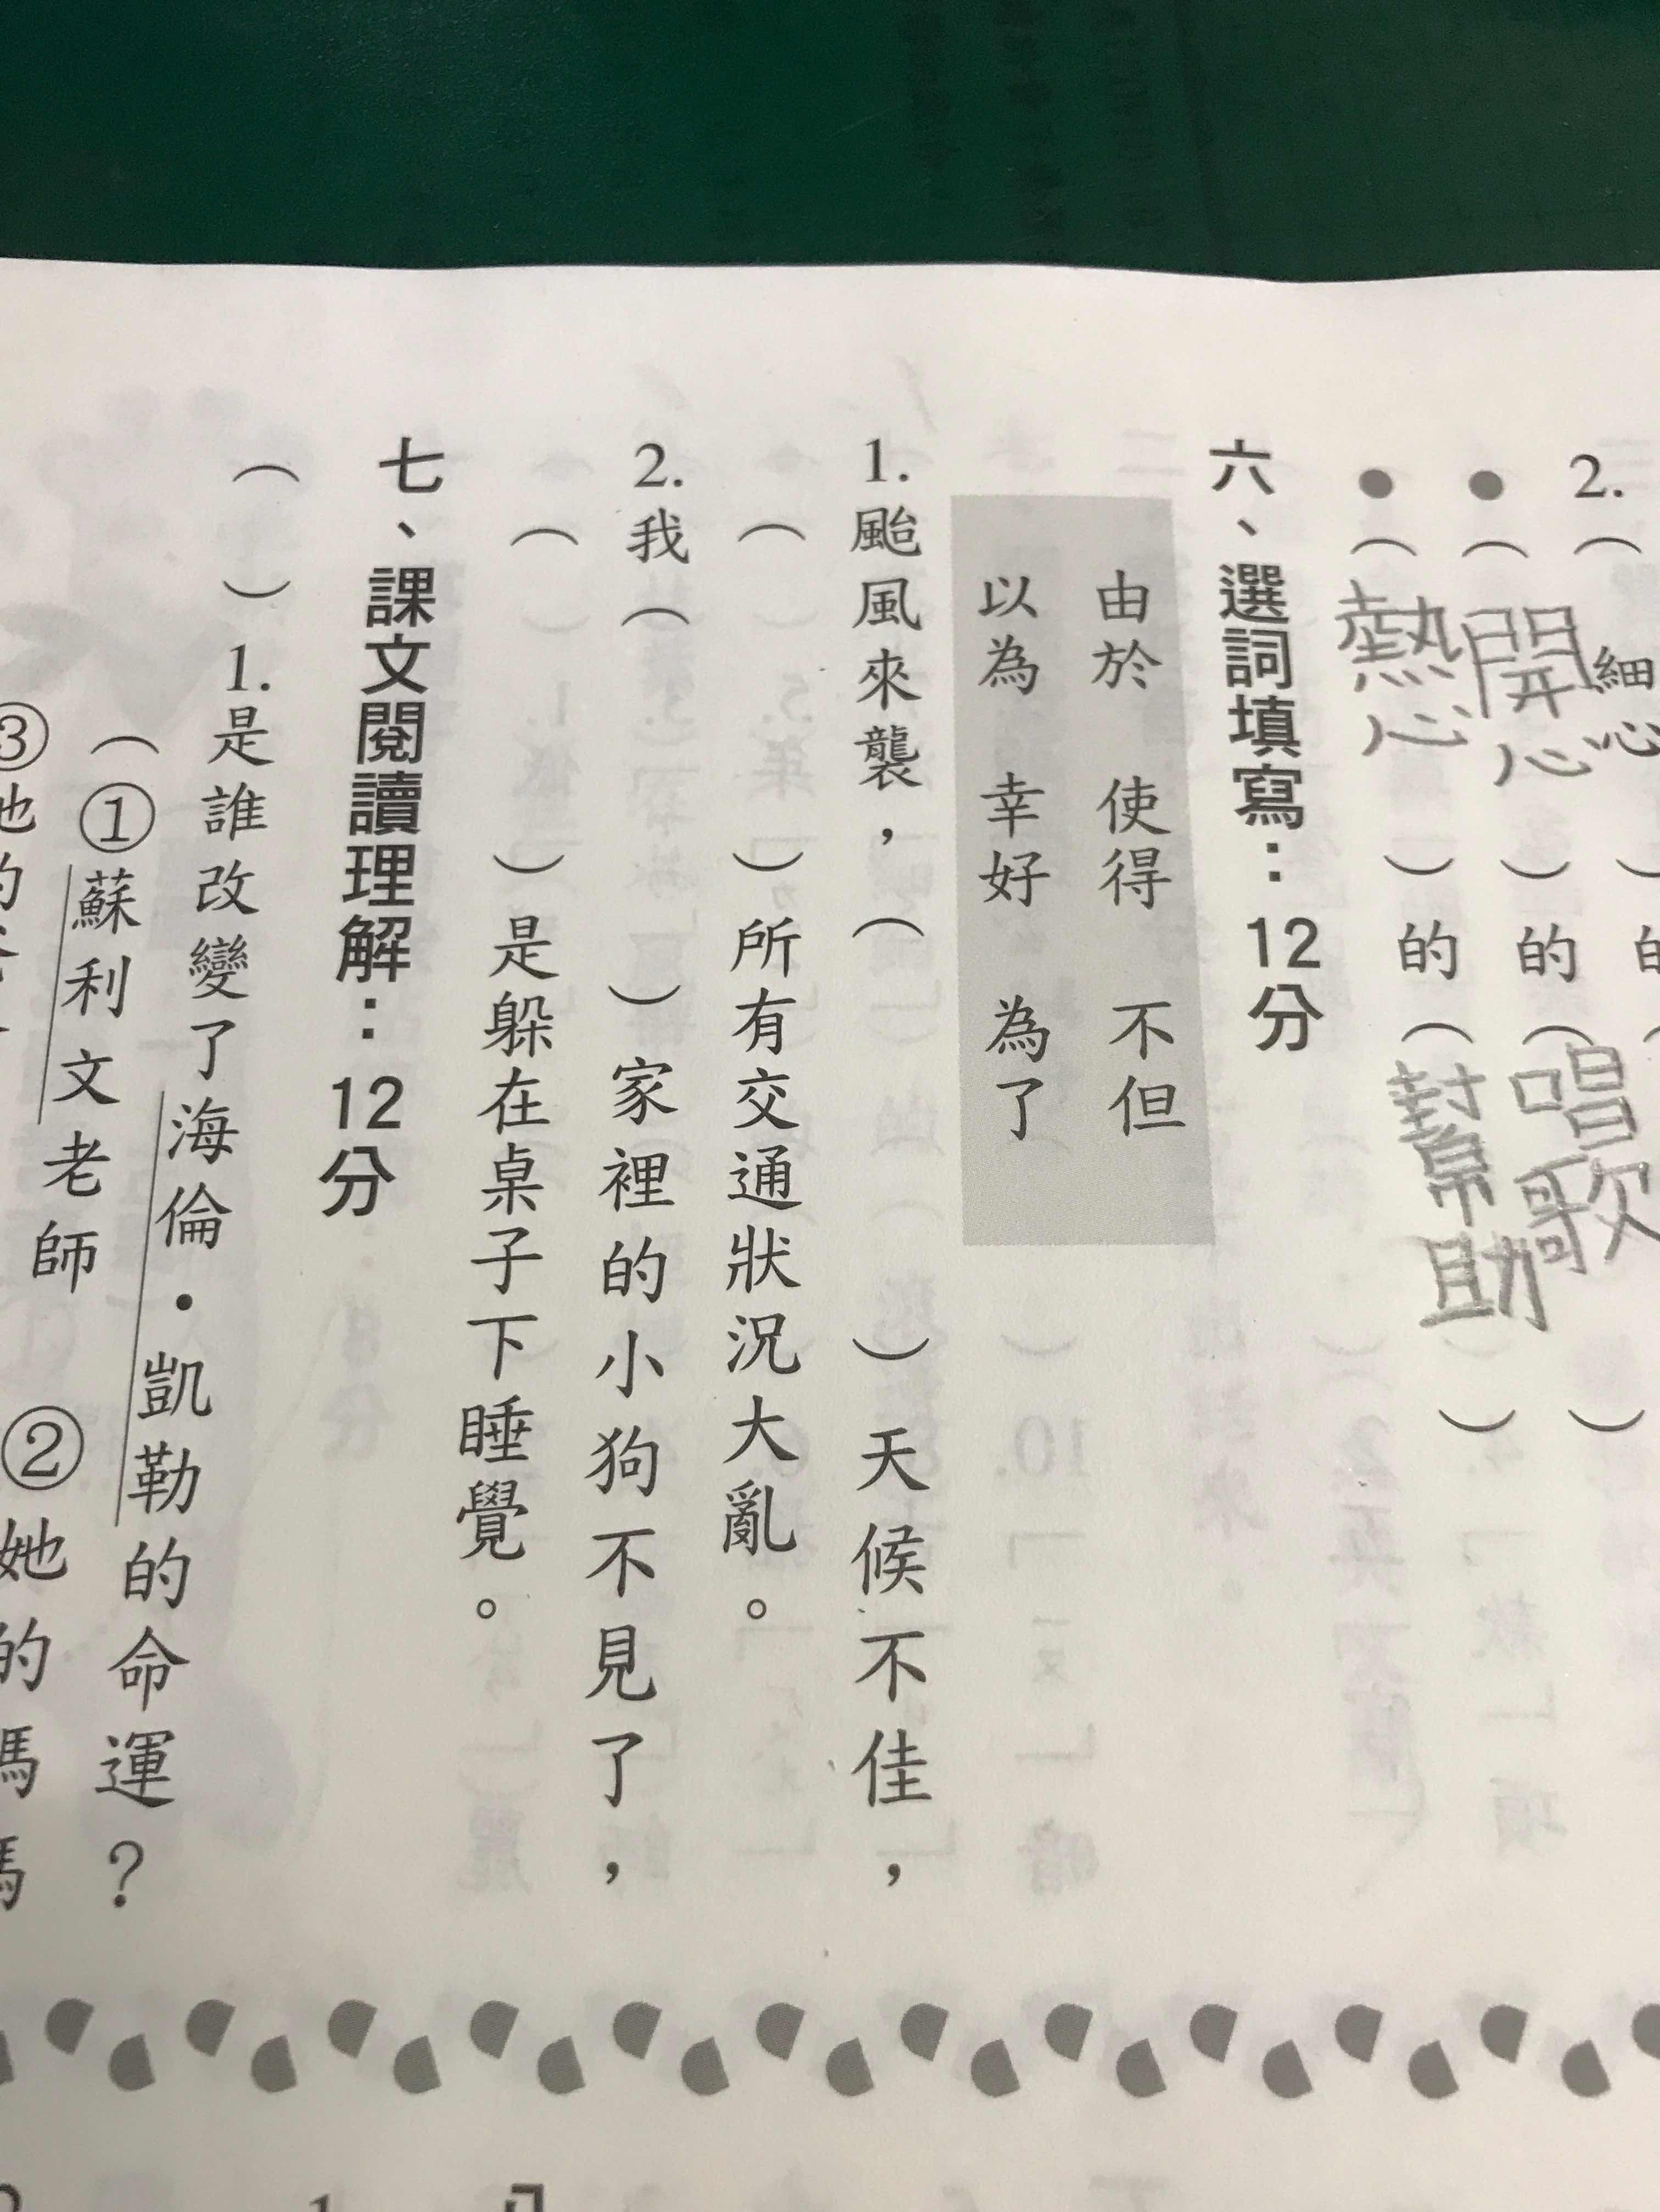 2.（細心）的（
●（開心）的（唱歌）
●（熱心）的（幫助）
六、選詞填寫：12分
由於　使得　不但
以為　幸好　為了
1.颱風來襲，（　）天候不佳，
（　）所有交通狀況大亂。
2.我（　）家裡的小狗不見了，
（　）是躲在桌子下睡覺。
七、課文閱讀理解：12分
（　）1.是誰改變了海倫．凱勒的命運？
（①蘇利文老師　②她的媽媽
③她的爸